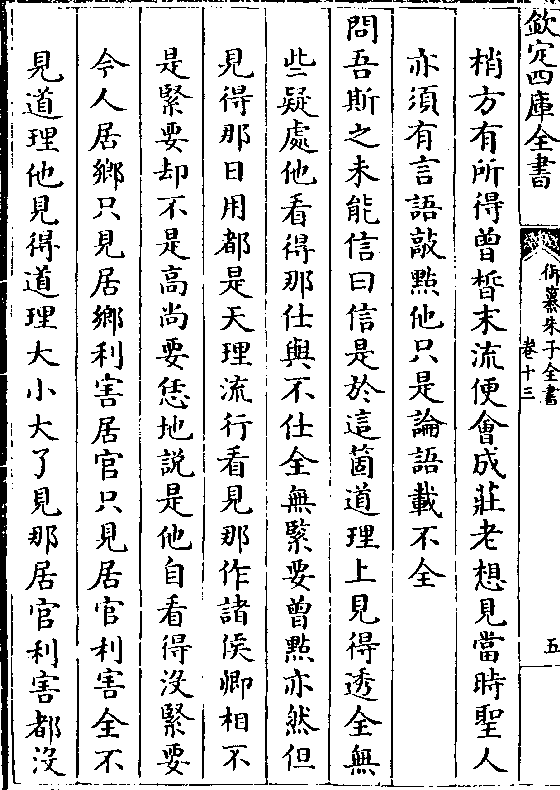 欽定四庫全書
御纂朱子全書
卷十三
五
梢方有所得曾晳末流便會成莊老想見當時聖人
亦須有言語敲點他只是論語載不全
問吾斯之未能信曰信是於這箇道理上見得透全無
些疑處他看得那仕與不仕全無緊要曾點亦然但
見得那日用都是天理流行看見那作諸侯卿相不
是緊要却不是高尚要恁地説是他自看得沒緊要
今人居鄉只見居鄉利害居官只見居官利害全不
見道理他見得道理大小大了見那居官利害都沒